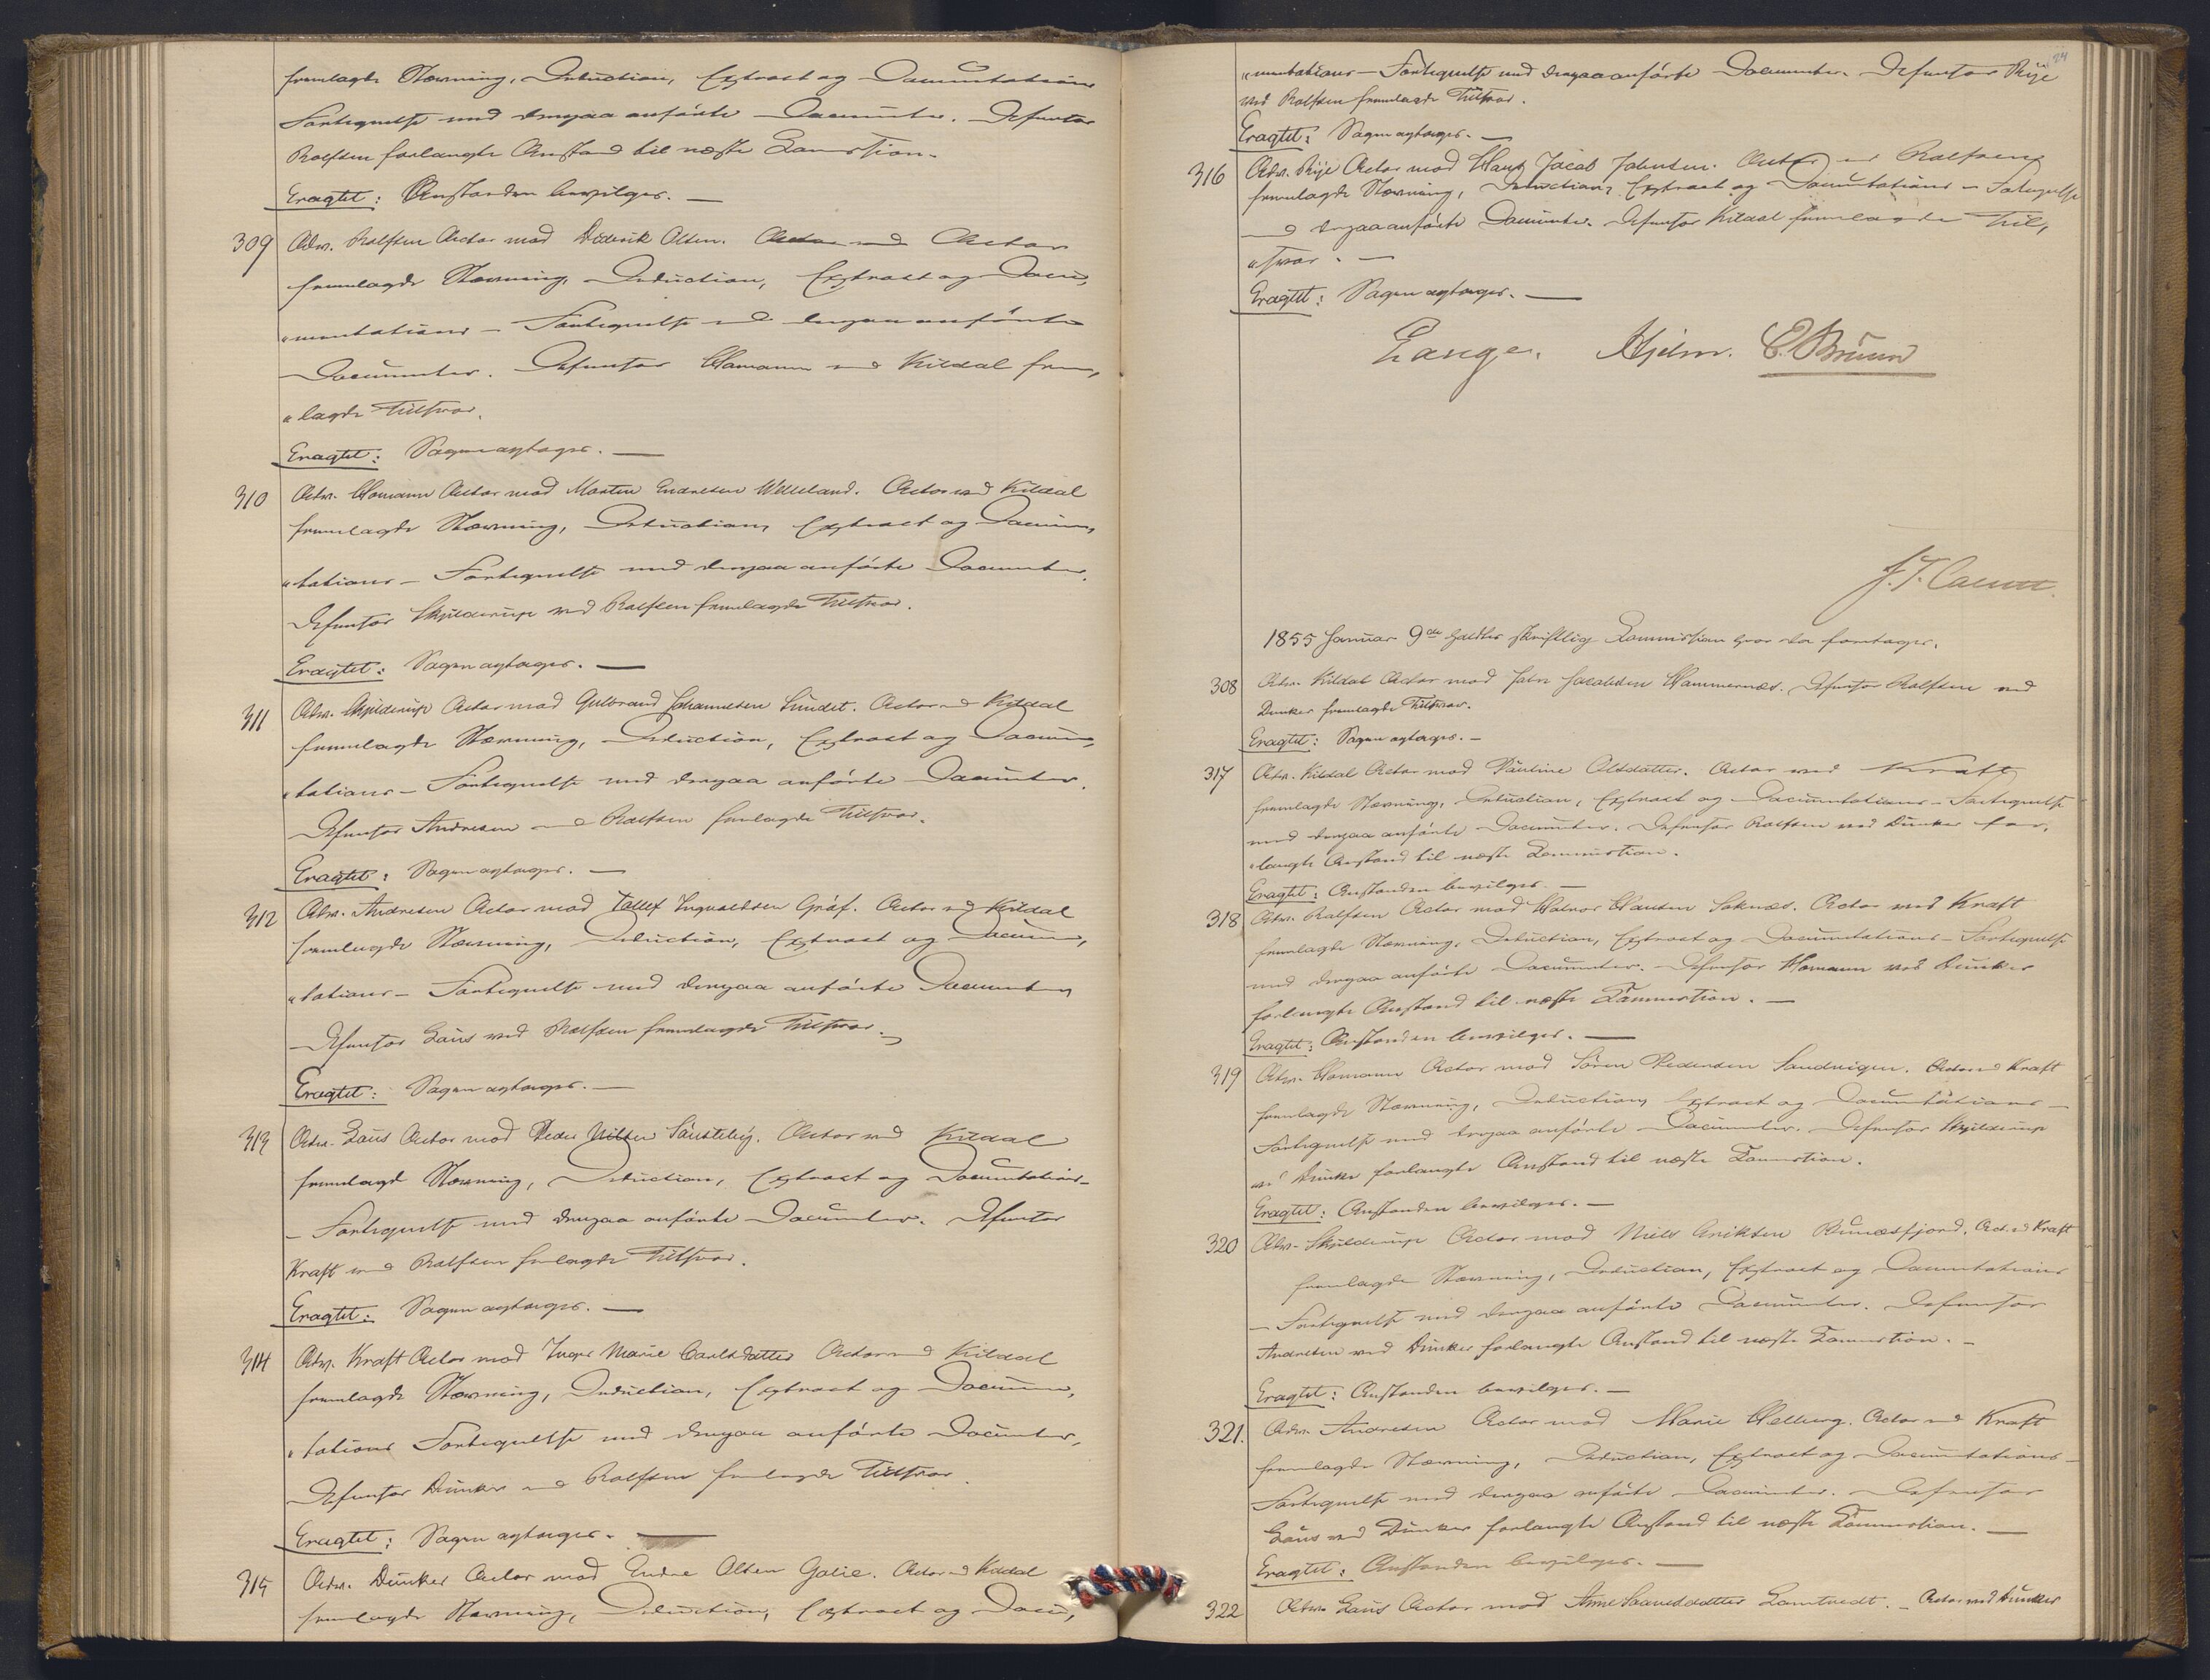 fremlagde Stævning, Deduction, Extract og Documentations
Fortegnelse med derpaa anförte Documenter. Defensor
Rolfsen forlangte Anstand til næste Session.
Eragtet: Anstanden bevilges. —
309 Adv. Rolfsen Actor mod Diderik Olsen. Actor
fremlagde Stævning, Deduction, Extract og Docu„
„mentations – Fortegnelse med derpaa anförte
Documenter. Defensor Homann ved Kildal frem„
„lagde Tilsvar.
Eragtet: Sagen optages. —
310 Adv. Homann Actor mod Morten Endresen Welleland. Actor ved Kildal
fremlagde Stævning, Deduction, Extract og Documen„
„tations – Fortegnelse med derpaa anförte Documenter.
Defensor Skjelderup ved Rolfsen fremlagde Tilsvar.
Eragtet: Sagen optages. —
311 Adv. Skjelderup Actor mod Gulbrand Johannesen Lundet. Actor ved Kildal
fremlagde Stævning, Deduction, Extract og Documen„
„tations – Fortegnelse med derpaa anförte Documenter.
Defensor Andresen ved Rolfsen fremlagde Tilsvar.
Eragtet: Sagen optages. —
312 Adv. Andresen Actor mod Tollef Gráf. Actor ved Kildal
fremlagde Stævning, Deduction, Extract og Documen„
„tations – Fortegnelse med derpaa anförte Documenter
Defensor Laus ved Rolfsen fremlagde Tilsvar. —
Eragtet: Sagen optages. —
313 Adv. Laus Actor mod Peder Nilsen. Actor ved Kildal
fremlagde Stævning, Deduction, Extract og Documentations-
– Fortegnelse med derpaa anförte Documenter. Defensor
Kraft ved Rolfsen fremlagde Tilsvar.
Eragtet: Sagen optages. —
314 Adv. Kraft Actor mod Inger Marie Carlsdatter Actor ved Kildal
fremlagde Stævning, Deduction, Extract og Documen„
„tations Fortegnelse med derpaa anförte Documenter,
Defensor Dunker ved Rolfsen fremlagde Tilsvar.
Eragtet: Sagen optages. —
315 Adv. Dunker Actor mod Endre Olsen Golie. Actor ved Kildal
fremlagde Stævning, Deduction, Extract og Docu„
24
„mentations – Fortegnelse med derpaa anförte Documenter. Defensor Rije
ved Rolfsen fremlagde Tilsvar.
Eragtet: Sagen optages. —
316 Adv. Rije Actor mod Hans Jacob Johnsen. Actor ved Rolfsen
fremlagde Stævning, Deduction, Extract og Documentations – Fortegnelse
med derpaa anförte Documenter. Defensor Kildal fremlagde Til„
„svar. —
Eragtet: Sagen optages. —
Lange. Hjelm. C. Bruun
1855 Januar 9de holdtes skriftlig Session hvor da foretoges.
308 Adv. Kildal Actor mod John Jacobsen Hammernæs. Defensor Rolfsen ved
Dunker fremlagde Tilsvar.
Eragtet: Sagen optages. —
317 Adv. Kildal Actor mod Pauline Olsdatter. Actor ved Kraft
fremlagde Stævning, Deduction, Extract og Documentations – Fortegnelse
med derpaa anförte Documenter. Defensor Rolfsen ved Dunker for„
„langte Anstand til næste Session.
Eragtet: Anstanden bevilges. —
318 Adv. Rolfsen Actor mod Halvor Hansen Soknæs. Actor ved Kraft
fremlagde Stævning, Deduction, Extract og Documentations – Fortegnelse
med derpaa anförte Documenter. Defensor Homann ved Dunker
forlangte Anstand til næste Session. —
Eragtet: Anstanden bevilges. —
319 Adv. Homann Actor mod Sören Pedersen Sandvigen. Actor ved Kraft
fremlagde Stævning, Deduction, Extract og Documentations –
Fortegnelse med derpaa anförte Documenter. Defensor Skjelderup
ved Dunker forlangte Anstand til næste Session.
Eragtet: Anstanden bevilges. —
320 Adv. Skjelderup Actor mod Niels Eriksen. Act. ved Kraft
fremlagde Stævning, Deduction, Extract og Documentations
– Fortegnelse med derpaa anförte Documenter. Defensor
Andresen ved Dunker forlangte Anstand til næste Session. –
Eragtet: Anstanden bevilges. —
321. Adv. Andresen Actor mod Marie Helberg. Actor ved Kraft
fremlagde Stævning, Deduction, Extract og Documentations –
Fortegnelse med derpaa anförte Documenter. Defensor
Laus ved Dunker forlangte Anstand til næste Session. —
Eragtet: Anstanden bevilges. —
322 Adv. Laus Actor mod Anne. – Actor ved Dunker